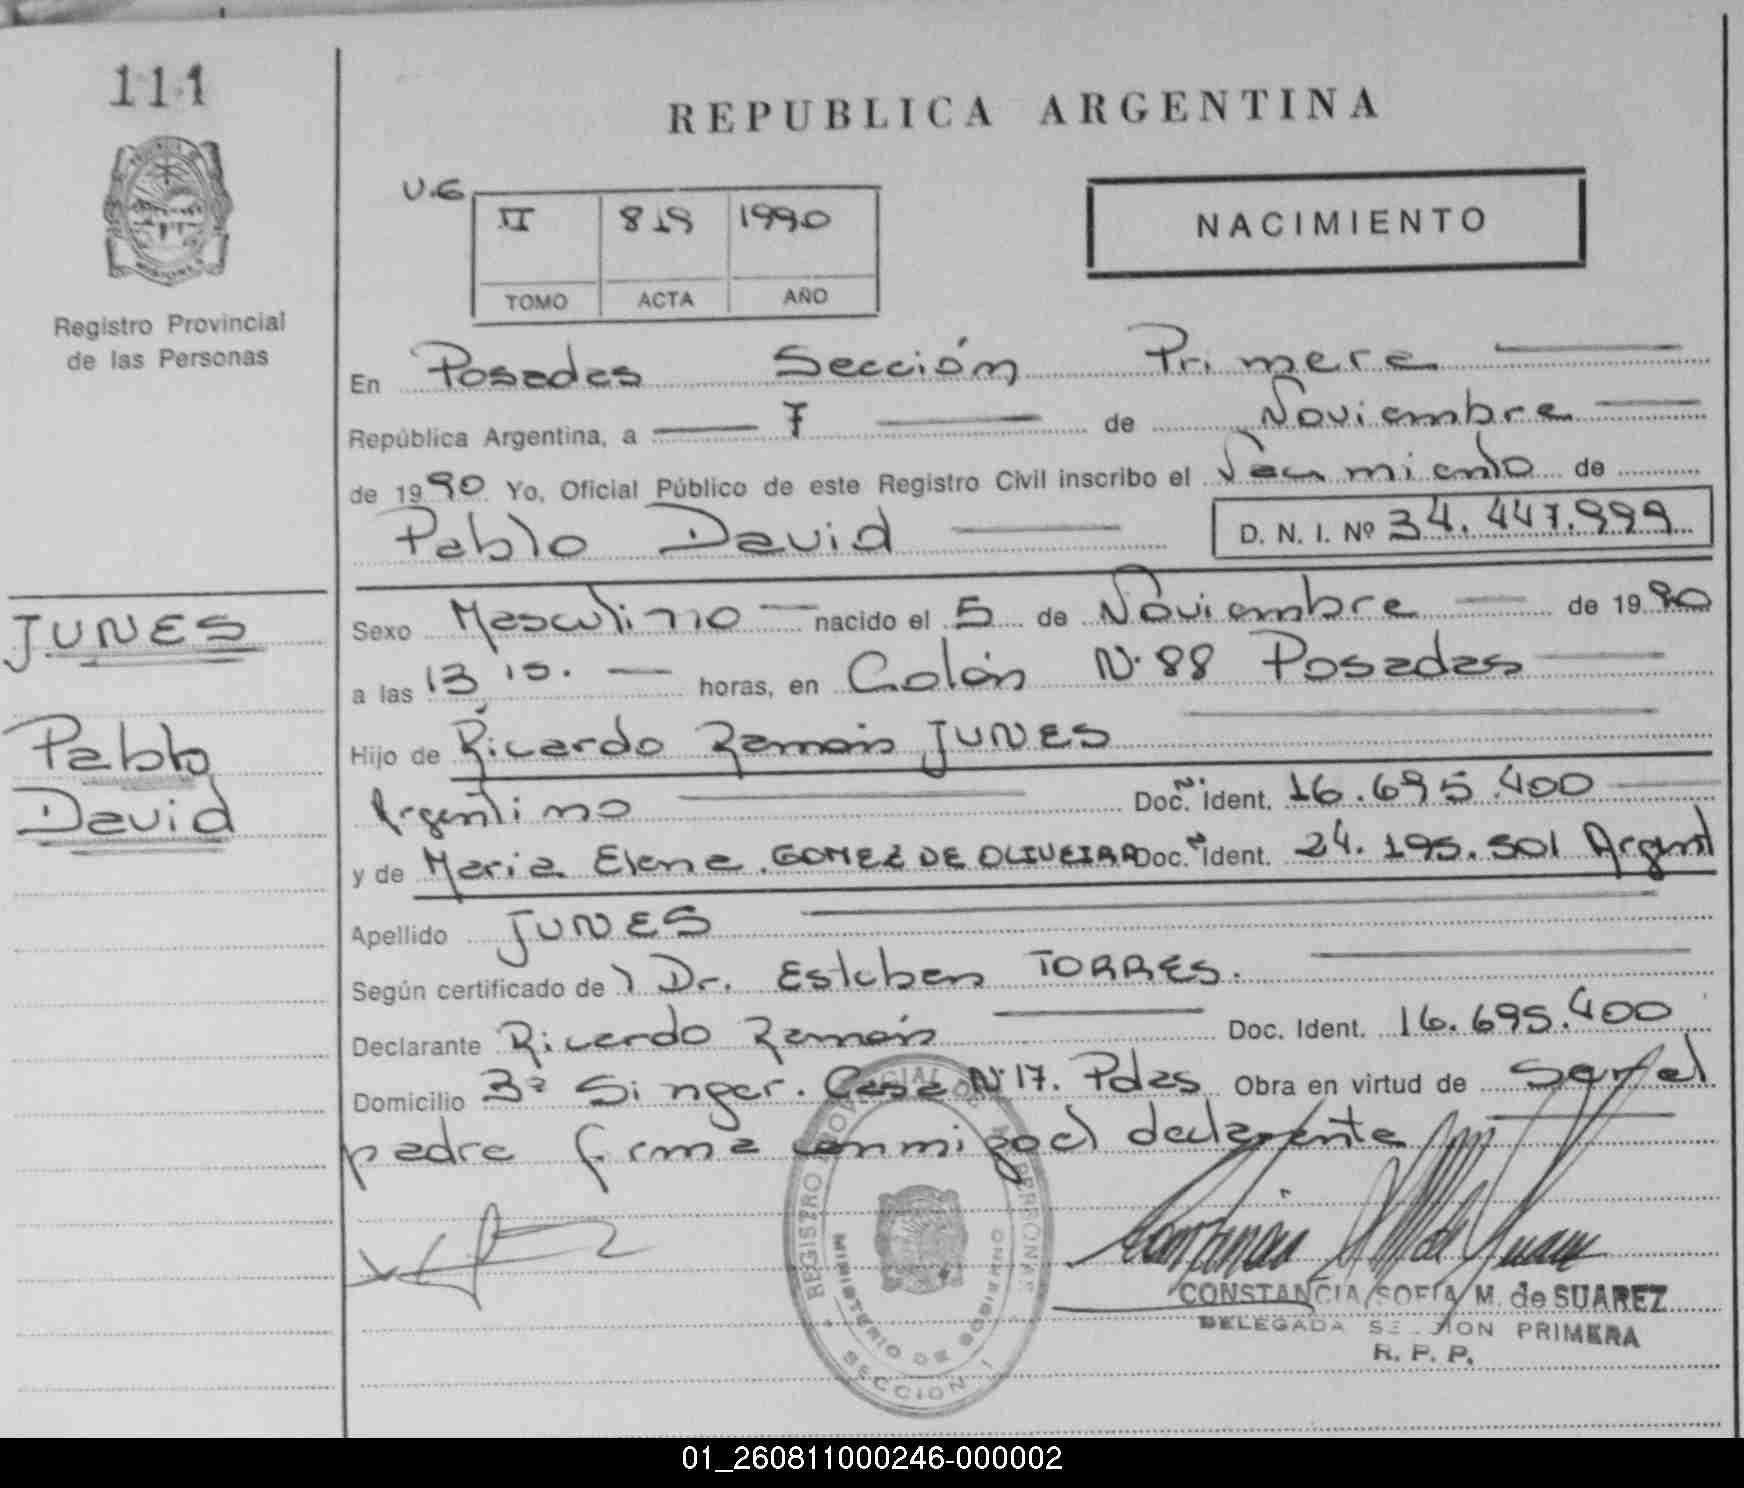 111
REPUBLICA ARGENTINA
U.G
II 819 1990
TOMO ACTA AÑO
NACIMIENTO
Registro Provincial
de las Personas
En Posadas Sección Primera
República Argentina, a 7 de Noviembre
de 1990 Yo, Oficial Público de este Registro Civil inscribo el Nacimiento de
Pablo David D. N. I. Nº 34.447.999
JUNES
Pablo
David
Sexo Masculino nacido el 5 de Noviembre de 1990
a las 13 15. horas, en Colón N° 88 Posadas
Hijo de Ricardo Ramón JUNES
Argentino Doc. Ident. 16.695.400
y de Maria Elena GOMEZ DE OLIVEIRA Doc. Ident. 24.195.501 Argent
Apellido JUNES
Según certificado de Dr. Esteban TORRES.
Declarante Ricardo Ramón Doc. Ident. 16.695.400
Domicilio 3ª Singer. Casa N° 17. Pdas Obra en virtud de ser el
padre firma conmigo el declarante
REGISTRO PROVINCIAL DE PERSONAS
MINISTERIO DE GOBIERNO
SECCION 1
CONSTANCIA SOFIA M. de SUAREZ
DELEGADA SECCION PRIMERA
R. P. P.
01_260811000246-000002